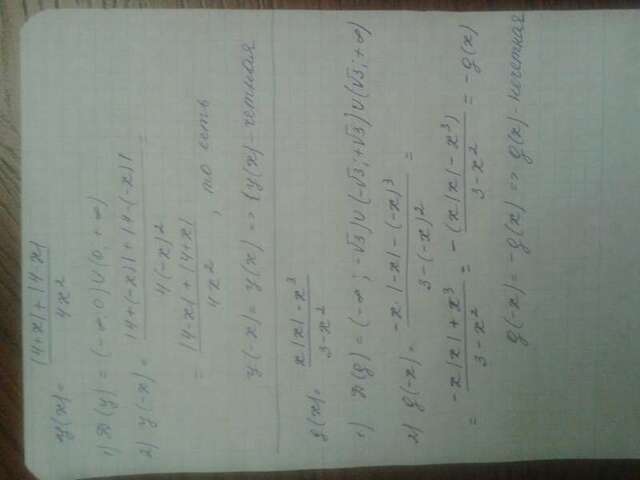 y(x) = |4+x| + |4-x| / 4x²
1) D(y) = (-∞ 0) ∪ (0 + ∞)
2) y(-x) = |4+(-x)| + |4-(-x)| / 4(-x)² =
= |4-x| + |4+x| / 4x² , то есть
y(-x) = y(x) => y(x) - четная
g(x) = x|x| - x³ / 3-x²
1) D(g) = (-∞ ; -√3) ∪ (-√3 ; +√3) ∪ (√3 ; +∞)
2) g(-x) = -x·|-x| - (-x)³ / 3-(-x)² =
= -x|x| + x³ / 3-x² = -(x|x| - x³) / 3-x² = -g(x)
g(-x) = -g(x) => g(x) - нечетная